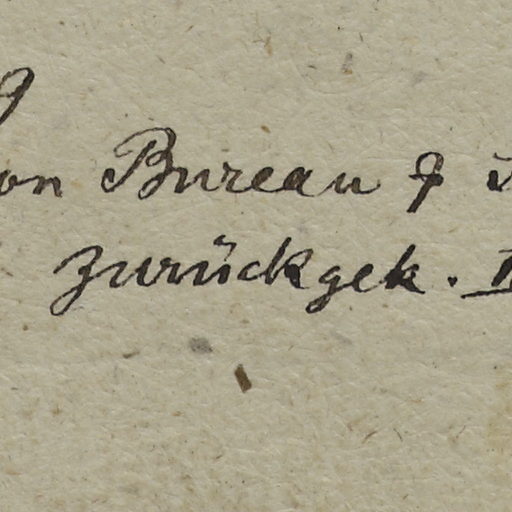 on Bureau
zurückgek.